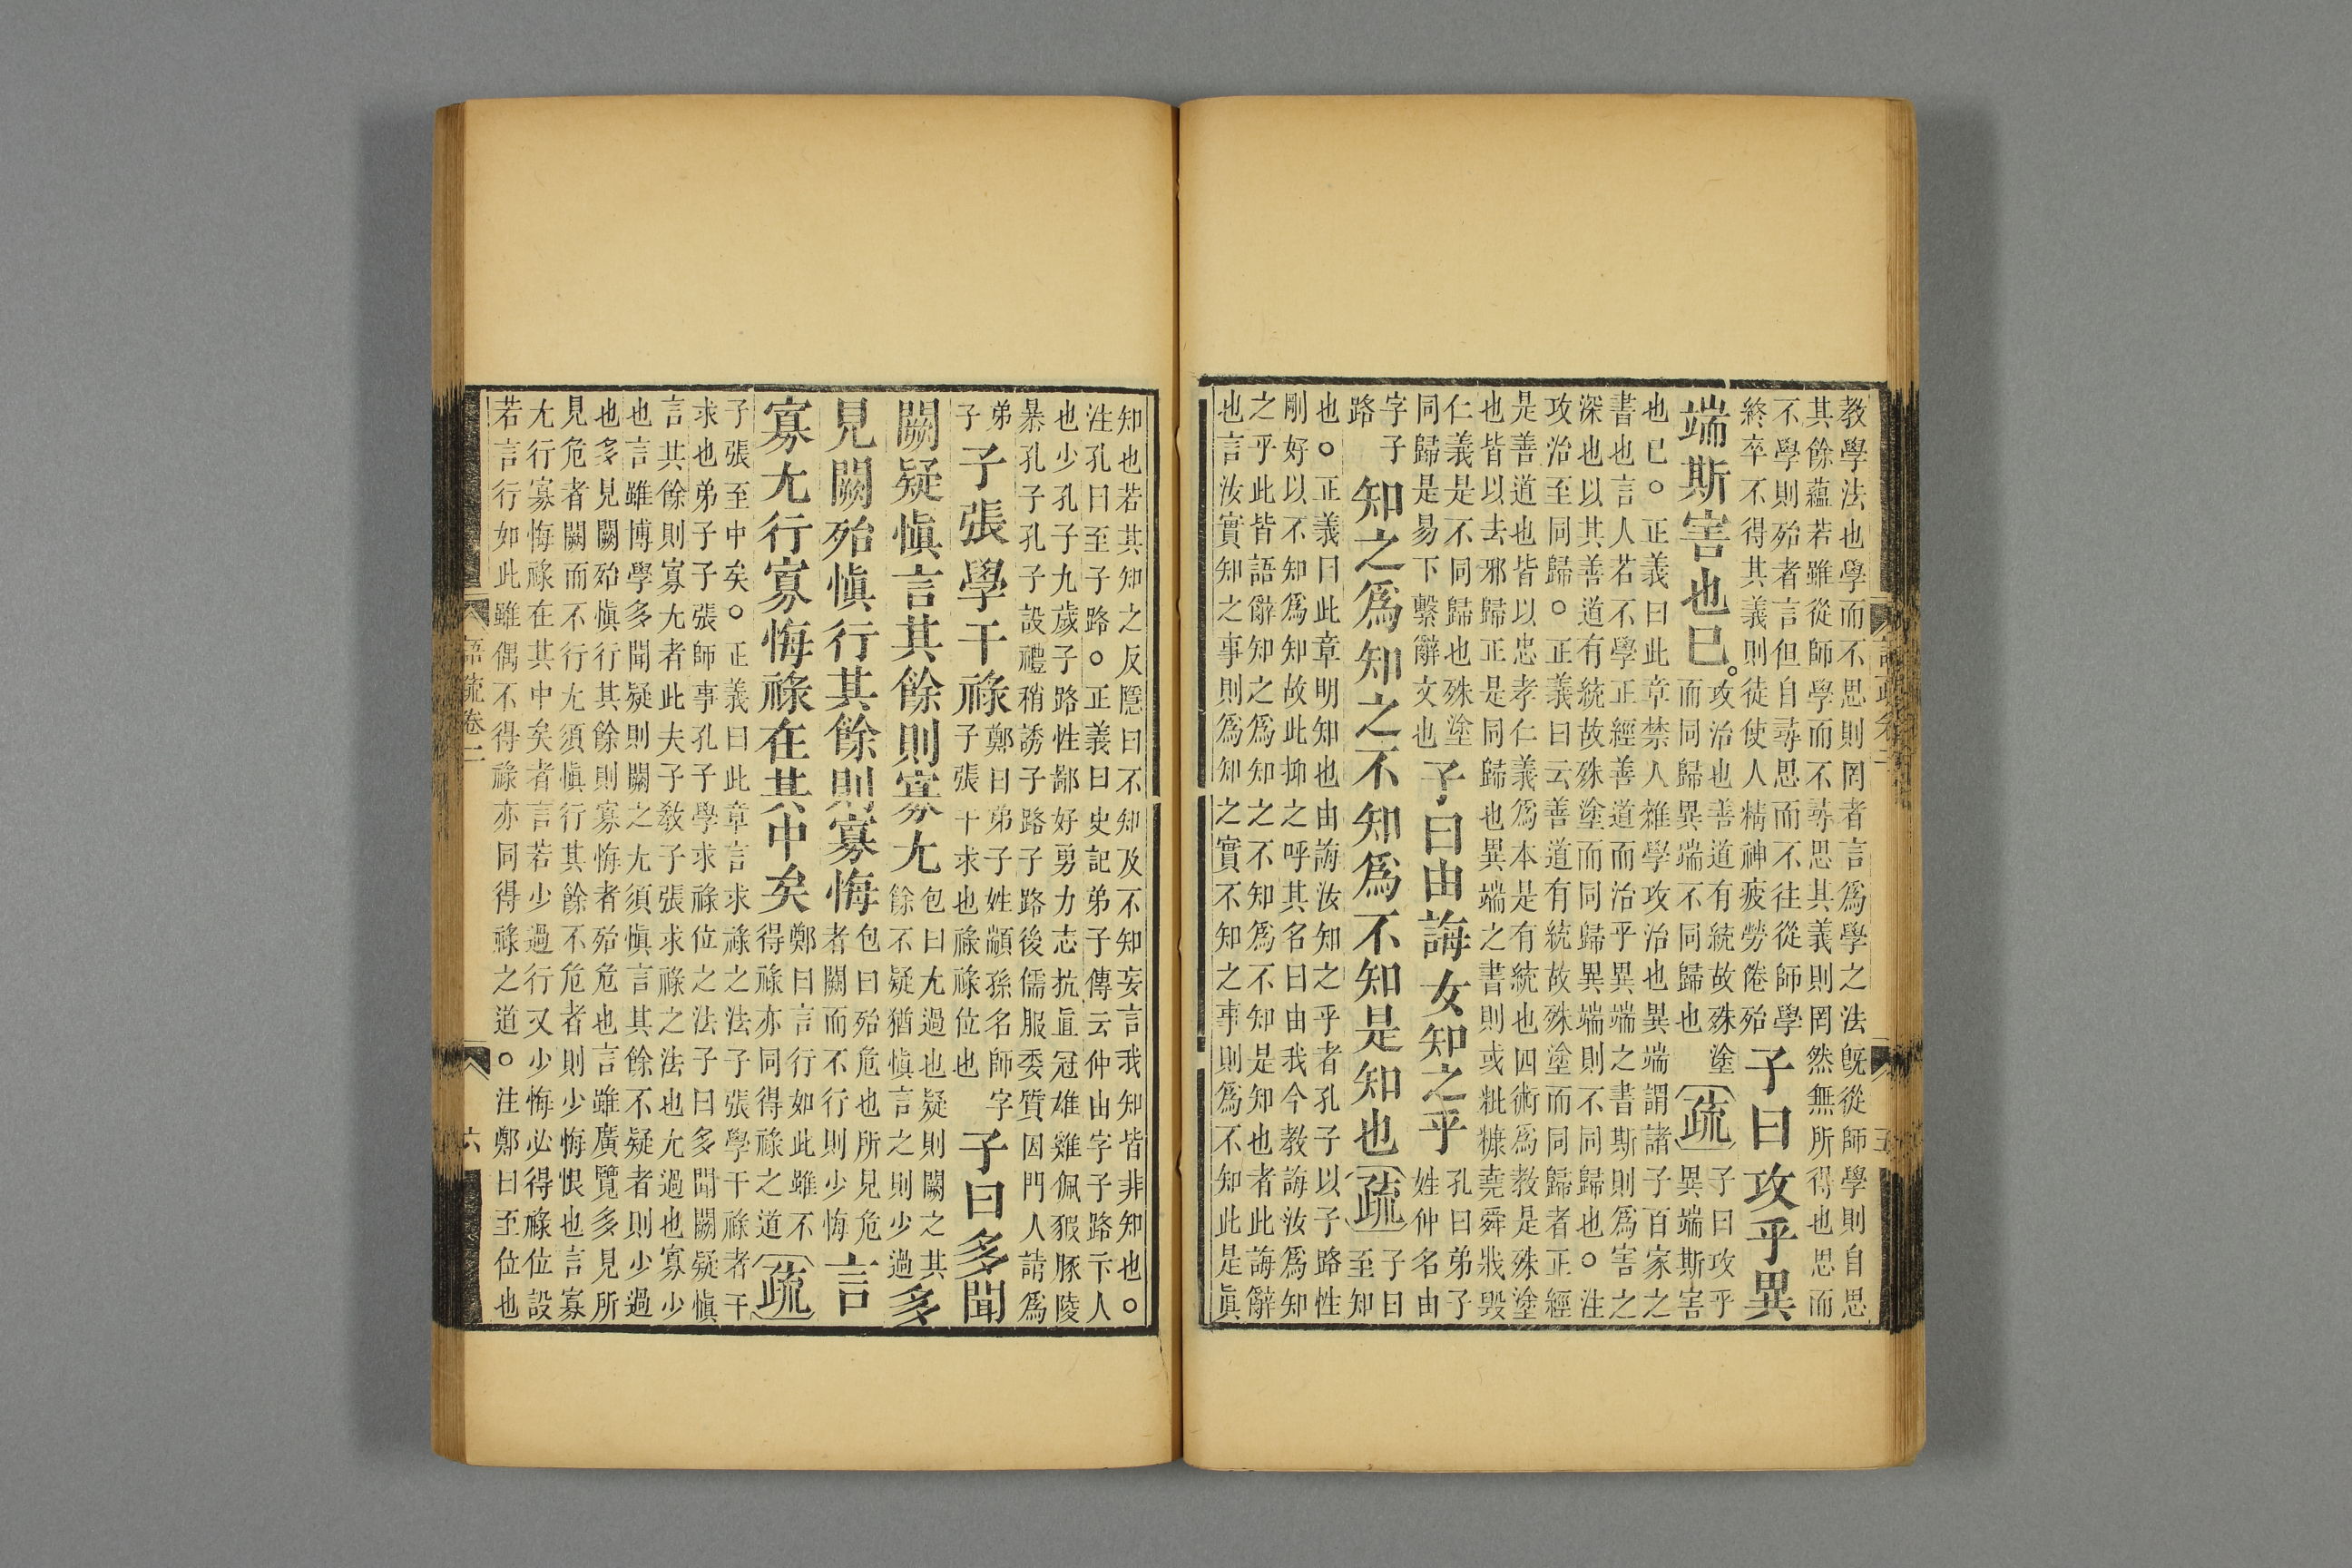 教學法也學而不思則罔者言爲學之法旣從師學則自思
其餘蘊若雖從師學而不尋思其義則罔然無所得也思而
不學則殆者言但自尋思而不往從師學
終卒不得其義則徒使人精神疲勞倦殆
子曰攻乎異
端斯害也已。
攻治也善道有統故殊塗
而同歸異端不同歸也
疏
子曰攻乎
異端斯害
也已。正義曰此章禁人雜學攻治也異端謂諸子百家之
書也言人若不學正經善道而治乎異端之書斯則爲害之
深也以其善道有統故殊塗而同歸異端則不同歸也。注
攻治至同歸。正義曰云善道有統故殊塗而同歸者正經
是善道也皆以忠孝仁義爲本是有統也四術爲教是殊塗
也皆以去邪歸正是同歸也異端之書則或粃糠堯舜戕毀
仁義是不同歸也殊塗
同歸是易下繫辭文也
子曰由誨女知之乎
孔曰弟子
姓仲名由
字子
路
知之爲知之不知爲不知是知也
疏
子曰
至知
也。正義曰此章明知也由誨汝知之乎者孔子以子路性
剛好以不知爲知故此抑之呼其名曰由我今教誨汝爲知
之乎此皆語辭知之爲知之不知爲不知是知也者此誨辭
也言汝實知之事則爲知之實不知之事則爲不知此是眞
知也若其知之反隱曰不知及不知妄言我知皆非知也。
注孔曰至子路。正義曰史記弟子傳云仲由字子路卞人
也少孔子九歲子路性鄙好勇力志抗直冠雄雞佩豭豚陵
暴孔子孔子設禮稍誘子路子路後儒服委質因門人請爲
弟
子
子張學干祿
鄭曰弟子姓顓孫名師字
子張干求也祿祿位也
子曰多聞
闕疑愼言其餘則寡尤
包曰尤過也疑則闕之其
餘不疑猶愼言之則少過
多
見闕殆愼行其餘則寡悔
包曰殆危也所見危
者闕而不行則少悔
言
寡尤行寡悔祿在其中矣
鄭曰言行如此雖不
得祿亦同得祿之道
疏
子張至中矣。正義曰此章言求祿之法子張學干祿者干
求也弟子子張師事孔子學求祿位之法子曰多聞闕疑愼
言其餘則寡尤者此夫子教子張求祿之法也尤過也寡少
也言雖博學多聞疑則闕之尤須愼言其餘不疑者則少過
也多見闕殆愼行其餘則寡悔者殆危也言雖廣覽多見所
見危者闕而不行尤須愼行其餘不危者則少悔恨也言寡
尤行寡悔祿在其中矣者言若少過行又少悔必得祿位設
若言行如此雖偶不得祿亦同得祿之道。注鄭曰至位也
語疏卷二
六